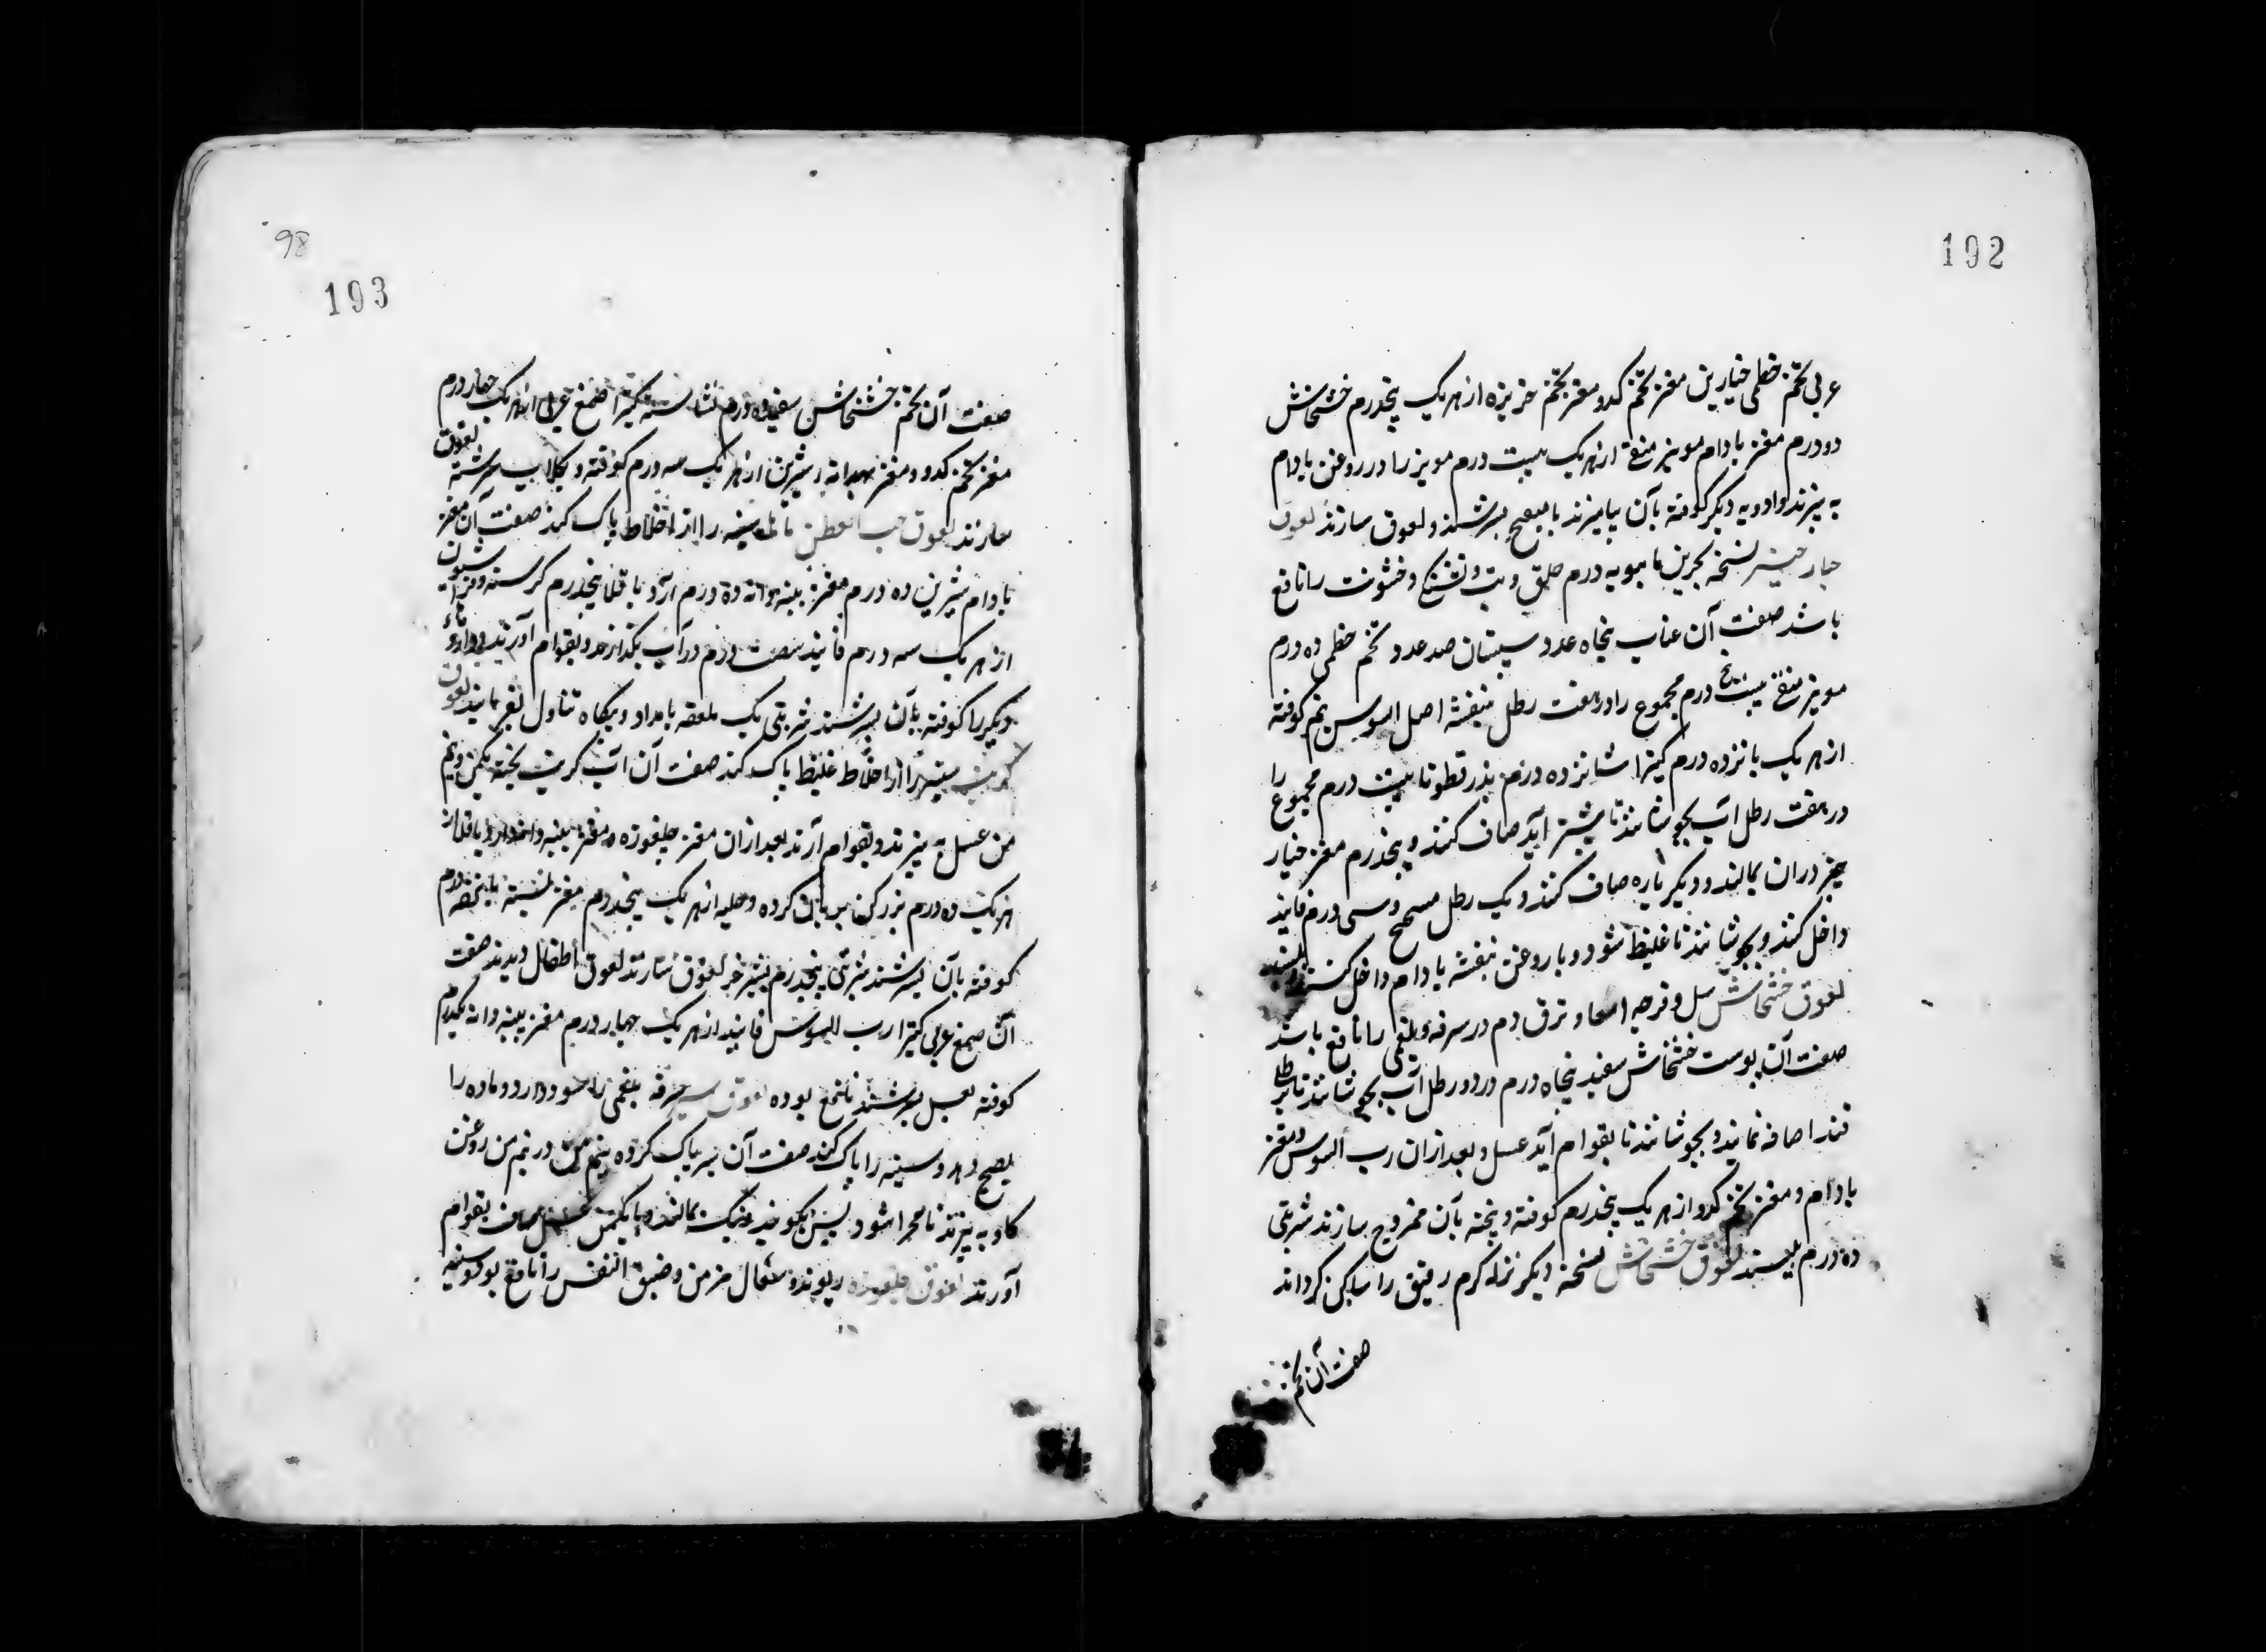 192
عربی تخم خطمی خیارین مغز تخم کدو مغز تخم خرپزه از هر یک پنجدرم خشخاش
دو درم مغز بادام مویز منقی از هر یک بیست درم مویز را در روغن بادام
به پزند و ادویه دیگر کوفته بآن بیامیزند بسرشند و لعوق سازند لعوق
خیار نسخه درم حلق و تب و تشنج و خشونت را نافع
باشد صفت آن عناب پنجاه عدد سپستان صد عدد تخم خطمی ده درم
مویز منقی بیست پنج درم مجموع را در هفت رطل بنفشه اصل السوس نیم کوفته
از هر یک پانزده درم کتیرا شانزده درم بذر قطونا بیست درم مجموع را
در هفت رطل آب بجوشانند تا آید صاف کنند و پنجدرم مغز خیار
دران بمالند و دیگر باره صاف کنند و یک رطل و سی درم فانید
داخل کنند و بجوشانند تا غلیظ شود و با روغن بنفشه بادام داخل کنند
لعوق خشخاش سل و قرحه امعا و درم در سرفه بلغمی را نافع باشد
صفت آن پوست خشخاش سفید پنجاه درم در دو رطل آب بجوشانند تا رطل
قند اضافه نمایند و بجوشانند تا بقوام آید عسل و بعد ازان رب السوس و مغز
بادام و مغز تخم کدو از هر یک پنجدرم کوفته و پخته بآن ممزوج سازند شربتی
ده درم بلیسند لعوق خشخاش نسخه دیگر نزله گرم رقیق را ساکن گرداند
صفت آن تخم
98
193
صفت آن تخم خشخاش سفید ده درم نشاسته کتیرا صمغ عربی از هر یک چهار درم
مغز تخم کدو و مغز بهدانه شیرین از هر یک سه درم کوفته و بجلاب سرشته لعوق
سازند لعوق حب القطن سینه را از اخلاط پاک کند صفت آن مغز
بادام شیرین ده درم مغز پنبه دانه ده درم آرد باقلا پنجدرم کرسنه
از هر یک سه درم فانید شصت درم در آب بگدازند و بقوام آورند و داروء
دیگر را کوفته بآن بسرشند شربتی یک ملعقه بامداد و بیگاه تناول نمایند لعوق
کرنب سینه را از اخلاط غلیظ پاک کند صفت آن آب کرنب پخته یکمن و نیم
من عسل به پزند و بقوام آرند بعد ازان مغز چلغوزه و مغز پنبه دانه و آرد باقلا از
هر یک ده درم بزر کتان بریان کرده و حلبه از هر یک پنجدرم مغز پسته پانزده درم
کوفته بآن بسرشند شربتی پنجدرم لعوق سازند لعوق اطفال دهند صفت
آن صمغ عربی کتیرا رب السوس فانید از هر یک چهار درم مغز پنبه دانه یکدرم
کوفته بعسل بسرشند نافع بوده لعوق سیر سرفه بلغمی را سود دارد و ماده را
نضج دهد و سینه را پاک کند صفت آن سیر پاک کرده نیم من در نیم من روغن
گاو به پزند تا مهرا شود پس بکوبند و نیک بمالند و با یکمن عسل صاف بقوام
آورند لعوق چلغوزه ربو و سعال مزمن و ضیق النفس را نافع بود و سینه